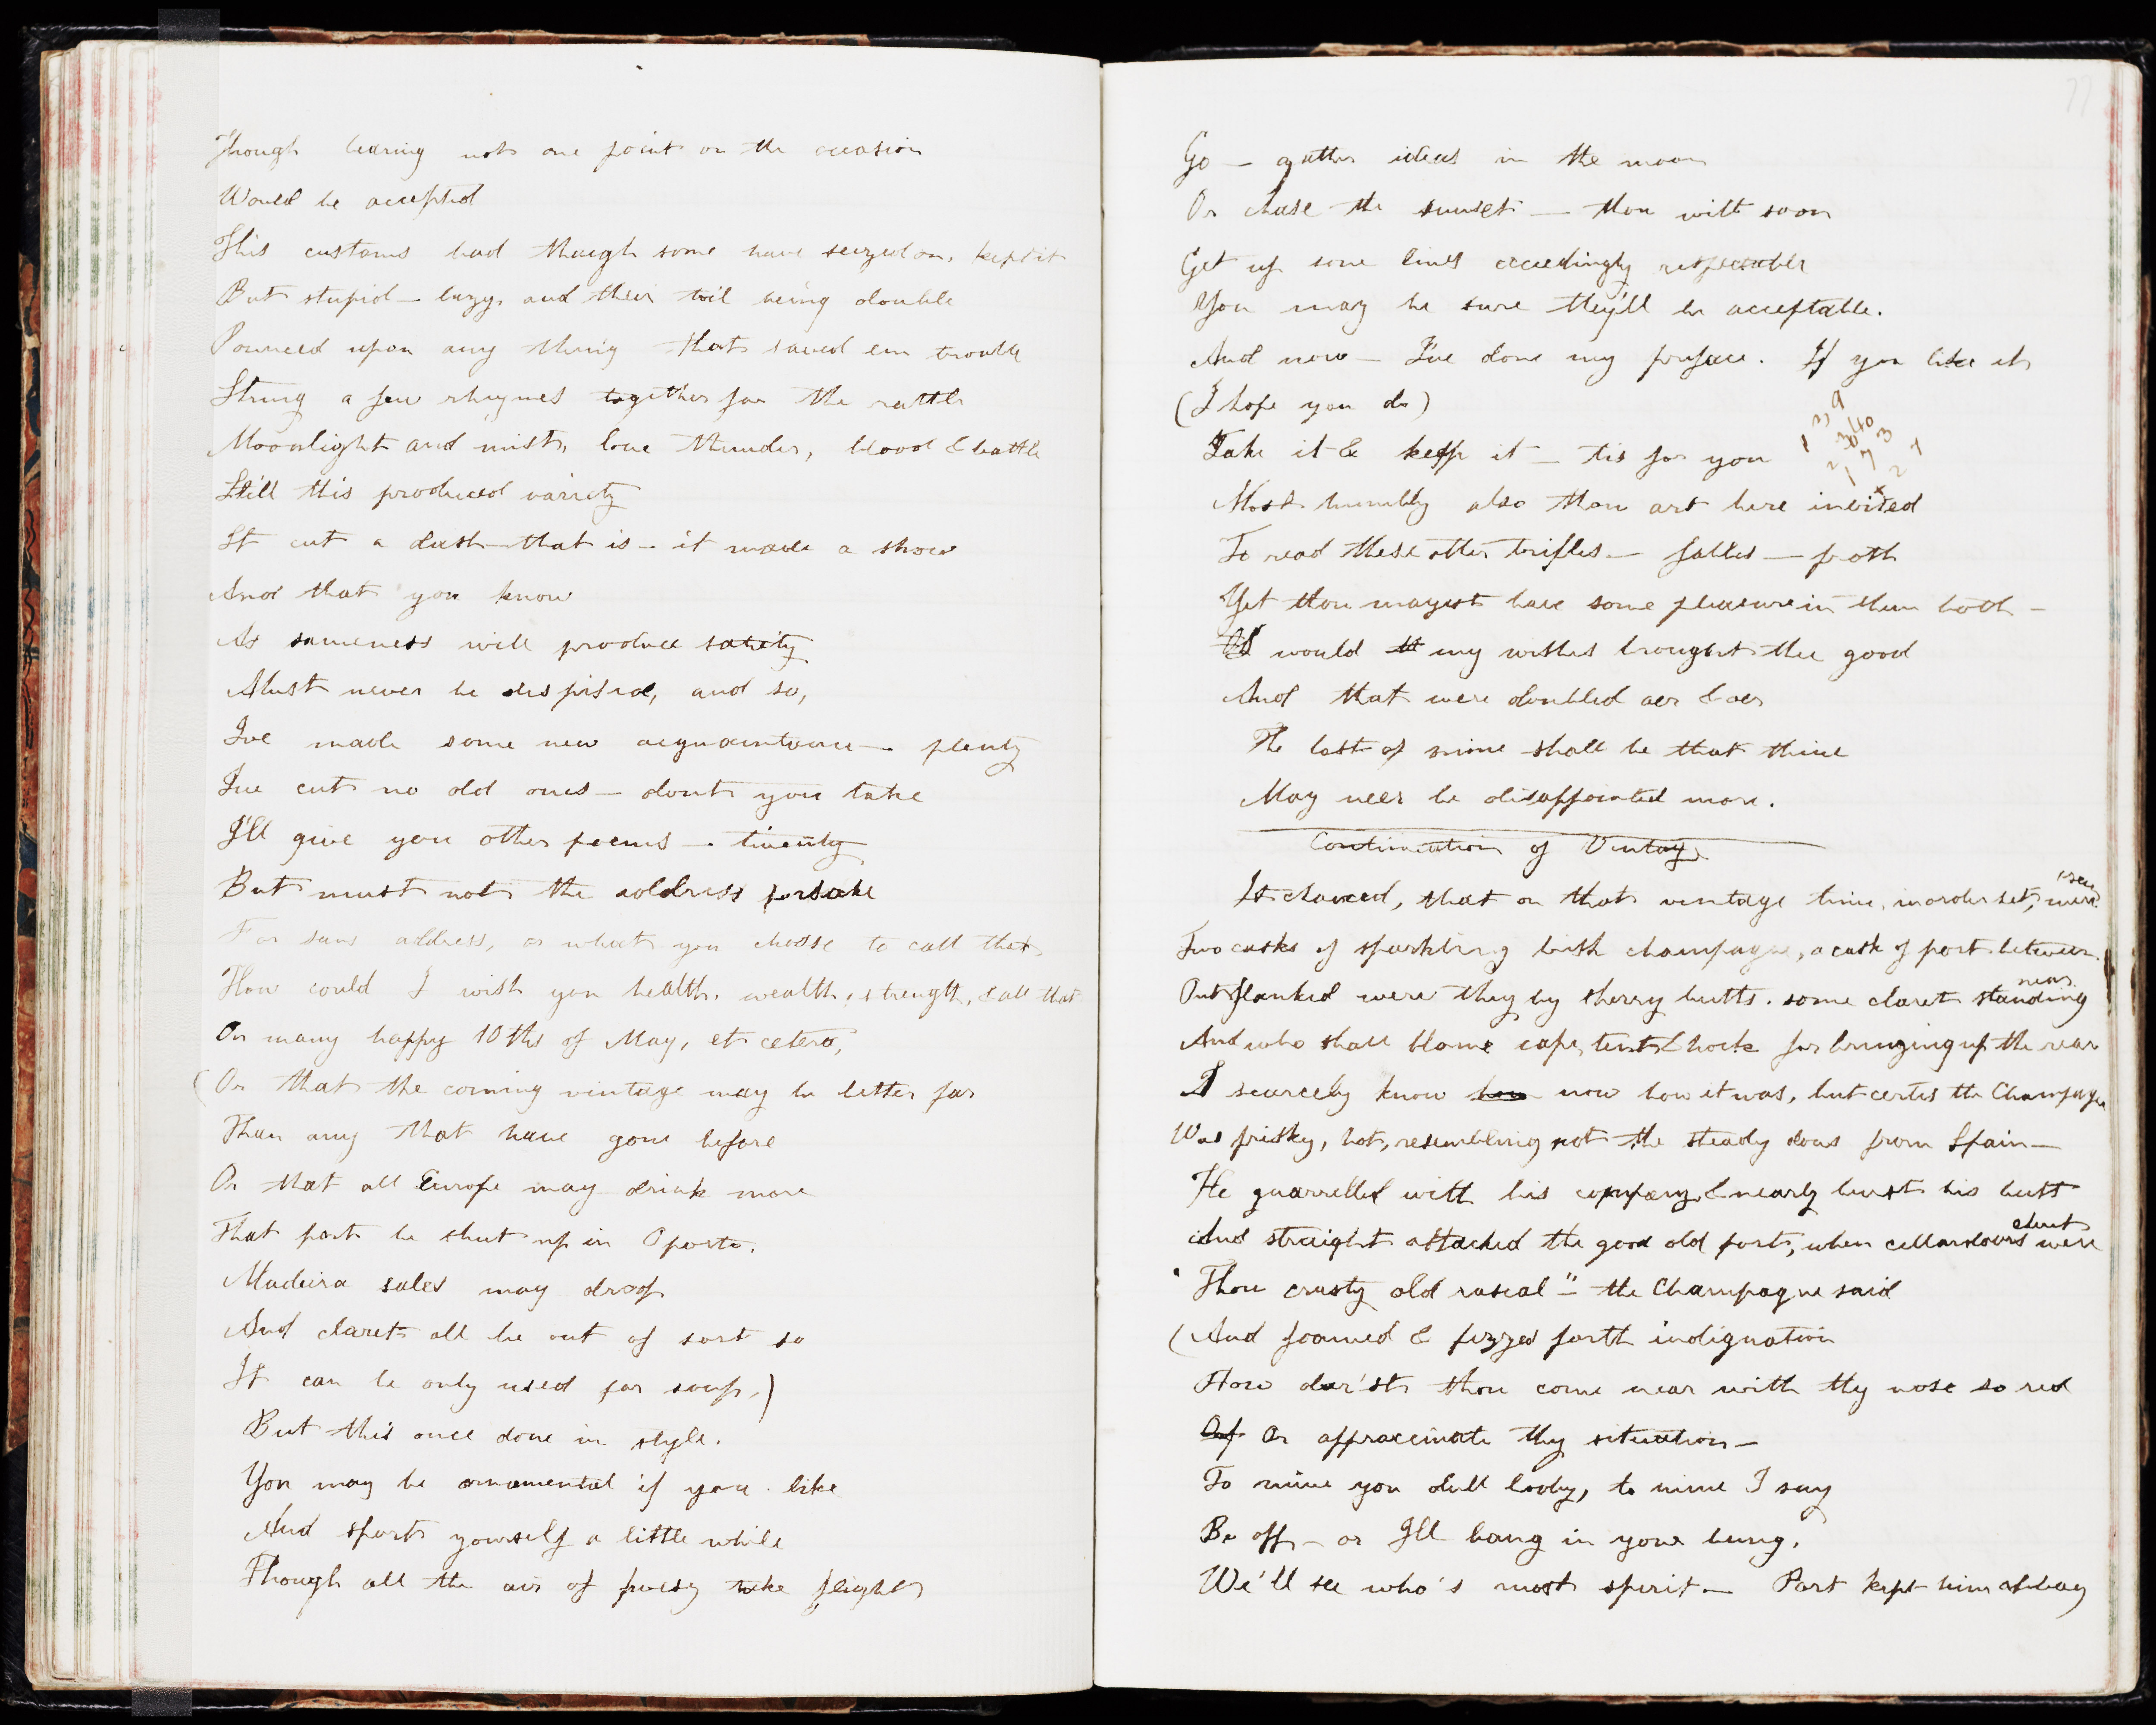 Though bearing not one point on the occasion
Would be accepted
This customs bad though some have seized on, kept it
But stupid - lazy, and their toil being double
Pounced upon any thing that saved em trouble
Strung a few rhymes together for the rattle
Moonlight and mist, love thunder, blood & battle
Still this produced variety
It cut a dash - that is - it made a show
And that you know
As sameness will produce satiety
Must never be despised, and so,
Ive made some new acquaintance - plenty
Ive cut no old ones - dont you take
I'll give you other poems - twenty
But must not the address forsake
For sans address, or what you choose to call that
How could I wish you health, wealth, strength, & all that
Or many happy 10ths of May, et cetera,
(Or that the coming vintage may be better far
Than any that have gone before
Or that all Europe may drink more
That port be shut up in Oporto,
Madeira sales may droop
And claret all be out of sort so
It can be only used for soup,)
But this once done in style,
You may be ornamental if you like
And sport yourself a little while
Though all the airs of poesy take flight
77
Go - gather ideas in the moon
Or chase the sunset - thou wilt soon
Get up some lines exceedingly respectable
You may be sure they'll be acceptable.
And now - I've done my preface. If you like it
(I hope you do)
Take it & keep it - tis for you
Most humbly also thou art here invited
To read these other trifles - fables - froth
Yet thou mayest have some pleasure in them both -
would my wishes brought thee good
And that were doubled oer & oer
The last of mine shall be that thine
May neer be disappointed more.
Continuation of Vintage
It chanced, that on that vintage time, in order set, were seen
Two casks of sparkling brisk champagne, a cask of port between
Outflanked were they by sherry butts, some claret standing near
And who shall blame cape, tent & hock for bringing up the rear
I scarcely know how now how it was, but certes the Champagne
Was frisky, hot, resembling not the steady dons from Spain -
He quarrelled with his company & nearly burst his butt
And straight attacked the good old port, when cellar doors were shut
"Thou crusty old rascal" - the Champagne said
(And foamed & fizzed forth indignation
How dar'st thou come near with thy nose so red
Or approximate thy situation -
To mine you dull looby, to mine I say
Be off - or I'll bang in your bung,
We'll see who's most spirit - Port kept him at bay